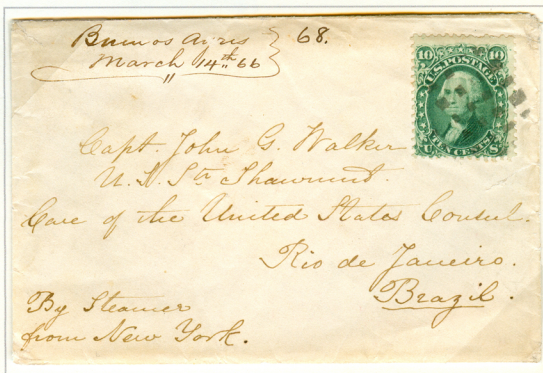 Buenos Aires
March 14th 66
68.
10 10
U.S. POSTAGE
TEN CENTS
U S
Capt. John G. Walker
U. S. Str Shawmut.
Care of the United States Consul.
Rio de Janeiro.
Brazil.
By Steamer
from New York.